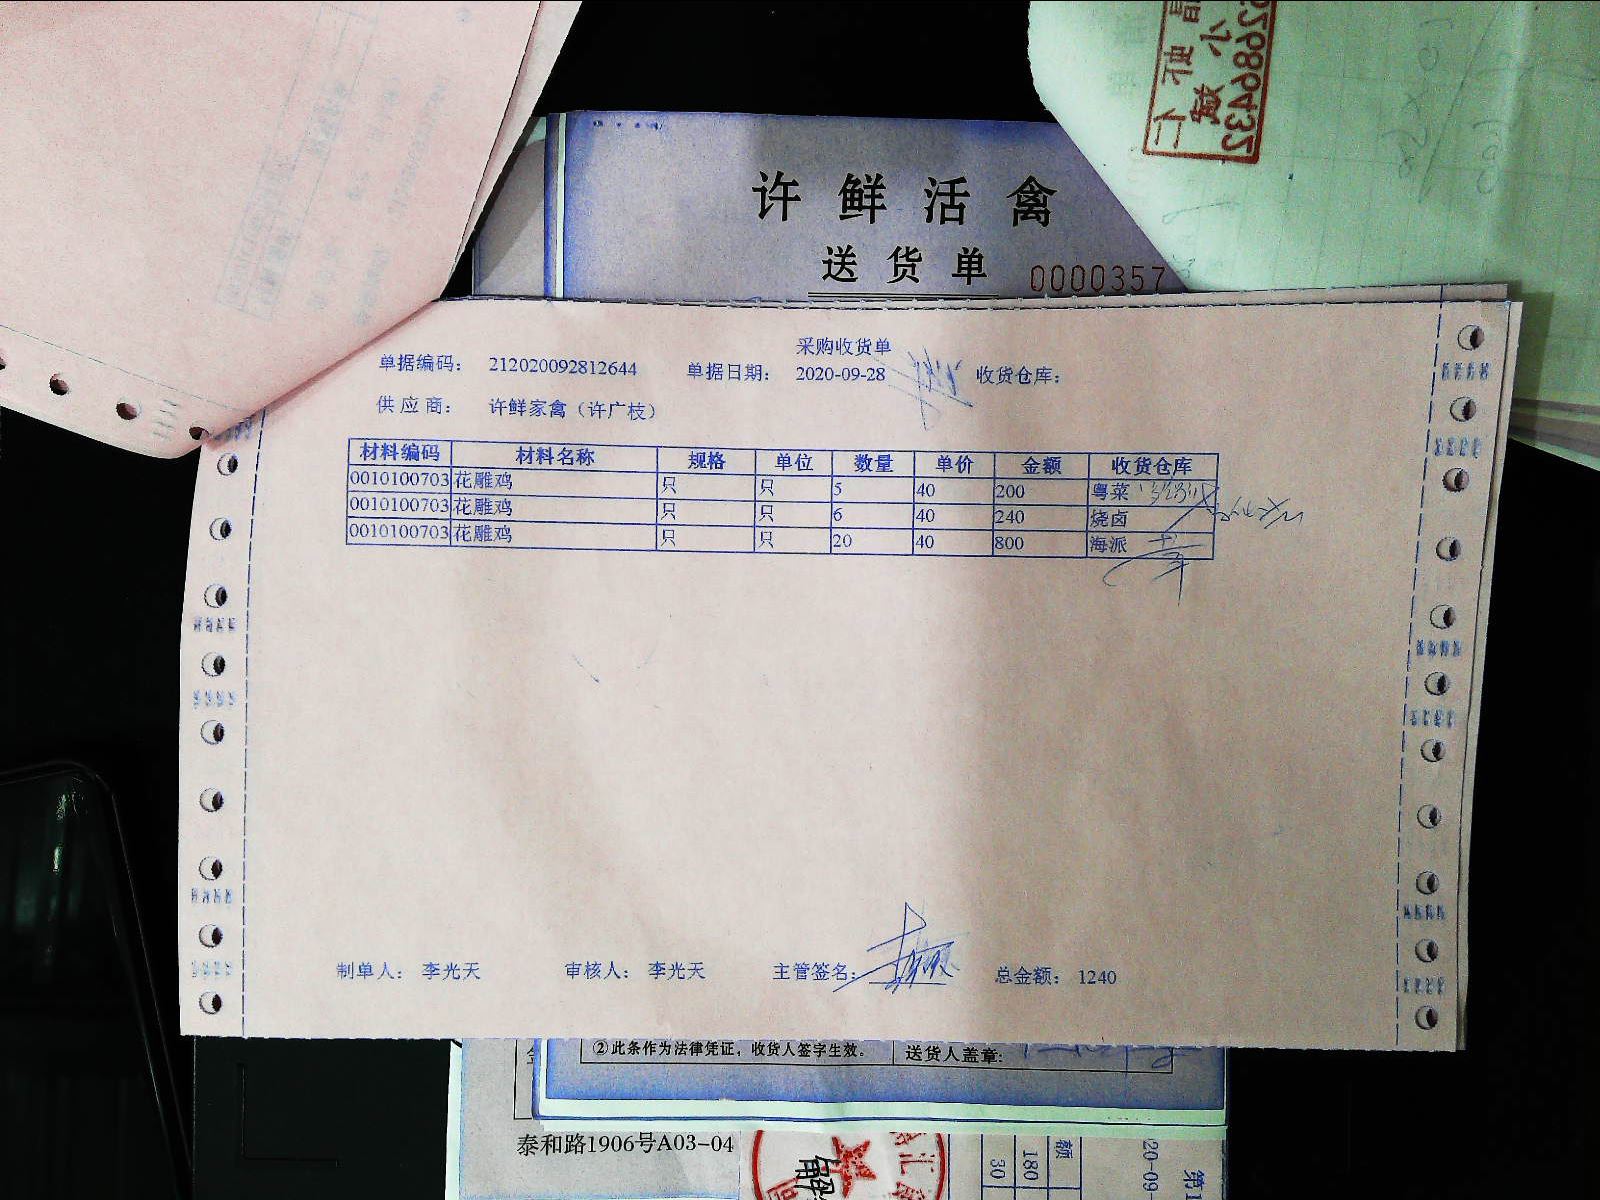 526864432
许鲜活禽
送货单 0000357
采购收货单
单据编码： 212020092812644 单据日期： 2020-09-28 收货仓库：
供应商： 许鲜家禽（许广枝）
材料编码 材料名称 规格 单位 数量 单价 金额 收货仓库
0010100703 花雕鸡 只 只 5 40 200 粤菜
0010100703 花雕鸡 只 只 6 40 240 烧卤
0010100703 花雕鸡 只 只 20 40 800 海派
制单人： 李光天 审核人： 李光天 主管签名： 总金额： 1240
②此条作为法律凭证，收货人签字生效。 送货人盖章：
泰和路1906号A03-04
额
180
30
20-09-
第1